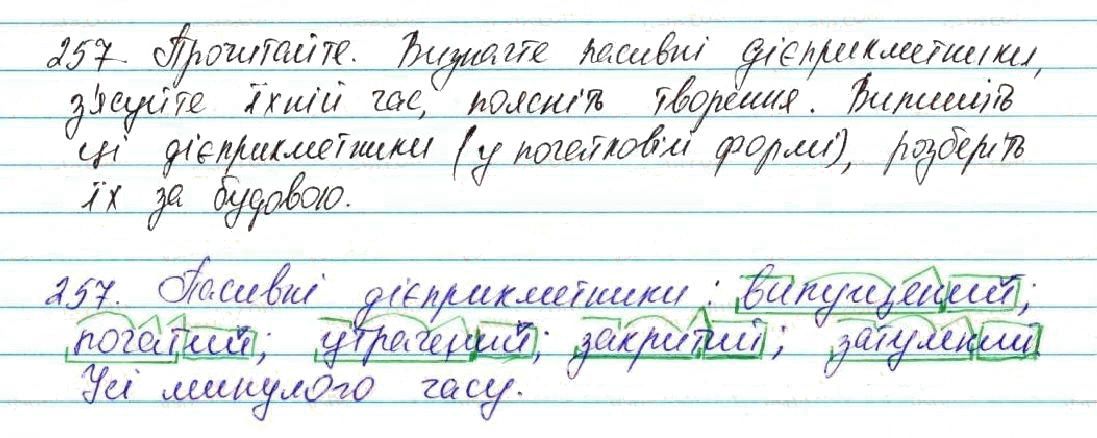 257. Прочитайте. Визначте пасивні дієприкметники,
з'ясуйте їхній час, поясніть творення. Випишіть
ці дієприкметники (у початковій формі), розберіть
їх за будовою.
257. Пасивні дієприкметники: випущений;
початий; утрачений; закритий; затулений
Усі минулого часу.